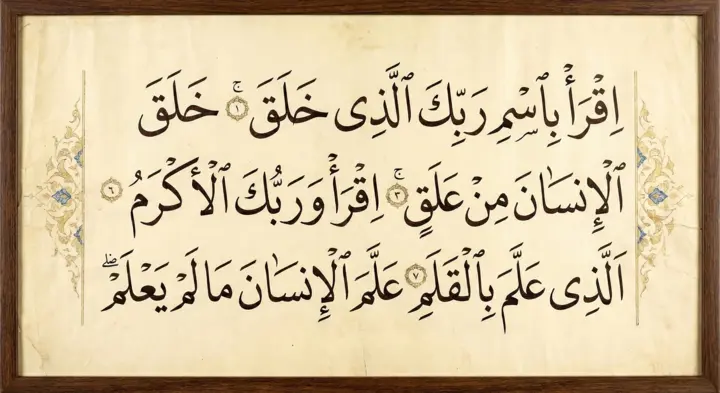 اِقْرَأْ بِٱسْمِ رَبِّكَ ٱلَّذِى خَلَقَ ۚ ۝١ خَلَقَ
ٱلْإِنسَانَ مِنْ عَلَقٍ ۚ ۝٣ اِقْرَأْ وَرَبُّكَ ٱلْأَكْرَمُ ۝٦
اَلَّذِى عَلَّمَ بِٱلْقَلَمِ ۝٧ عَلَّمَ ٱلْإِنسَانَ مَا لَمْ يَعْلَمْ ۖ